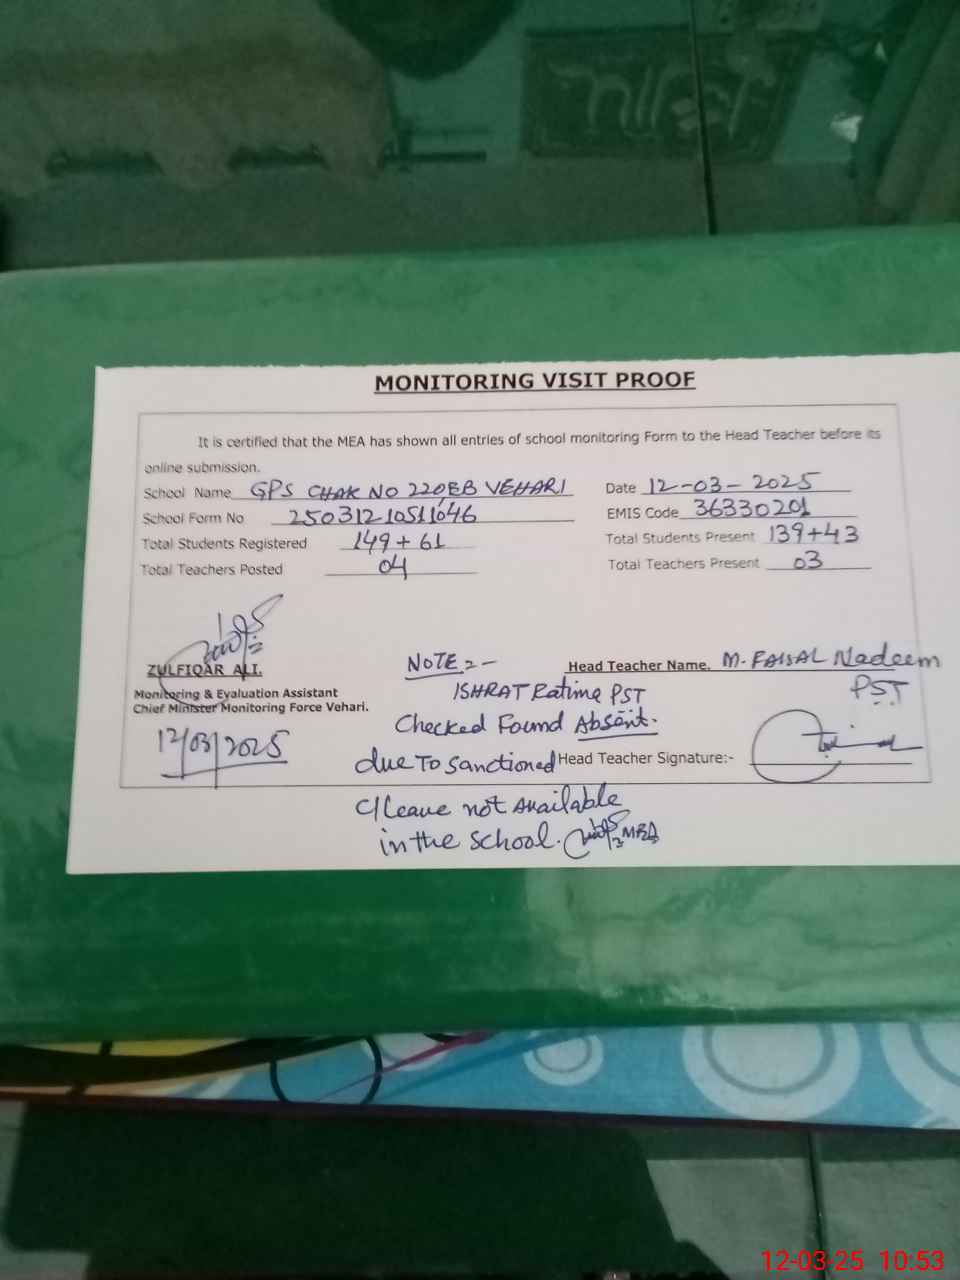 MONITORING VISIT PROOF
It is certified that the MEA has shown all entries of school monitoring Form to the Head Teacher before its
online submission.
School Name GPS CHAK NO 220EB VEHARI Date 12-03-2025
School Form No 25031210511046 EMIS Code 36330201
Total Students Registered 149+61 Total Students Present 139+43
Total Teachers Posted 04 Total Teachers Present 03
ZULFIQAR ALI. NOTE:- Head Teacher Name. M. FAISAL Nadeem
PST
Monitoring & Evaluation Assistant ISHRAT Ratime PST
Chief Minister Monitoring Force Vehari. Checked Found Absent.
12/03/2025 due To Sanctioned Head Teacher Signature:-
C/Leave not available
in the school. MEA
12-03-25 10:53